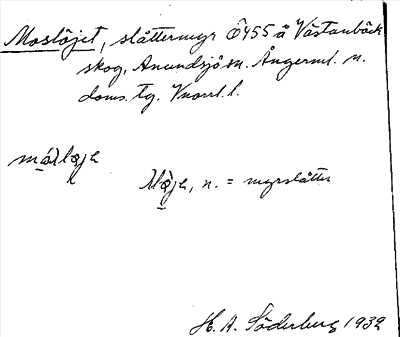 Moslöjet, slåttermyr Ö455 å Västanbäck
skog, Anundsjö sn. Ångerml. n.
doms. tg. Vnorrl. l.
Løje, n. = myrslåtter
H. A. Söderberg 1932